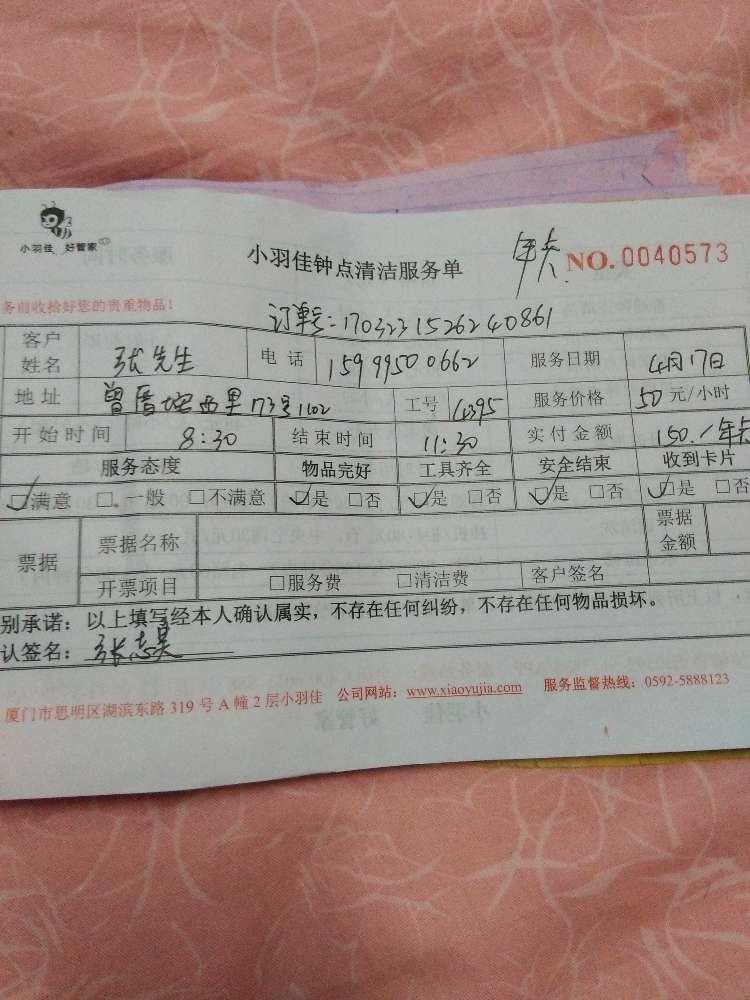 小羽佳 好管家
小羽佳钟点清洁服务单
年卡
NO.0040573
务前收拾好您的贵重物品！
订单号：170323152624 0861
客户姓名 张先生 电话 15999500662 服务日期 4月17日
地址 曾厝垵西里173号1102 工号 服务价格 50元/小时
开始时间 8:30 结束时间 11:30 实付金额 150./年卡
服务态度 物品完好 工具齐全 安全结束 收到卡片
☑满意 □一般 □不满意 ☑是 □否 ☑是 □否 ☑是 □否 ☑是 □否
票据 票据名称 票据金额
开票项目 □服务费 □清洁费 客户签名
别承诺：以上填写经本人确认属实，不存在任何纠纷，不存在任何物品损坏。
认签名：张志昊
厦门市思明区湖滨东路 319 号 A 幢 2 层小羽佳 公司网站：www.xiaoyujia.com 服务监督热线：0592-5888123